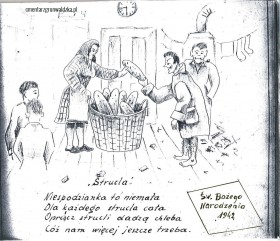 cmentarzgrunwaldzka.pl
„Strucla”
Niespodzianka to niemała
Dla każdego strucla cała
Oprócz strucli dadzą chleba
Cóż nam więcej jeszcze trzeba.
Św. Bożego
Narodzenia
1942